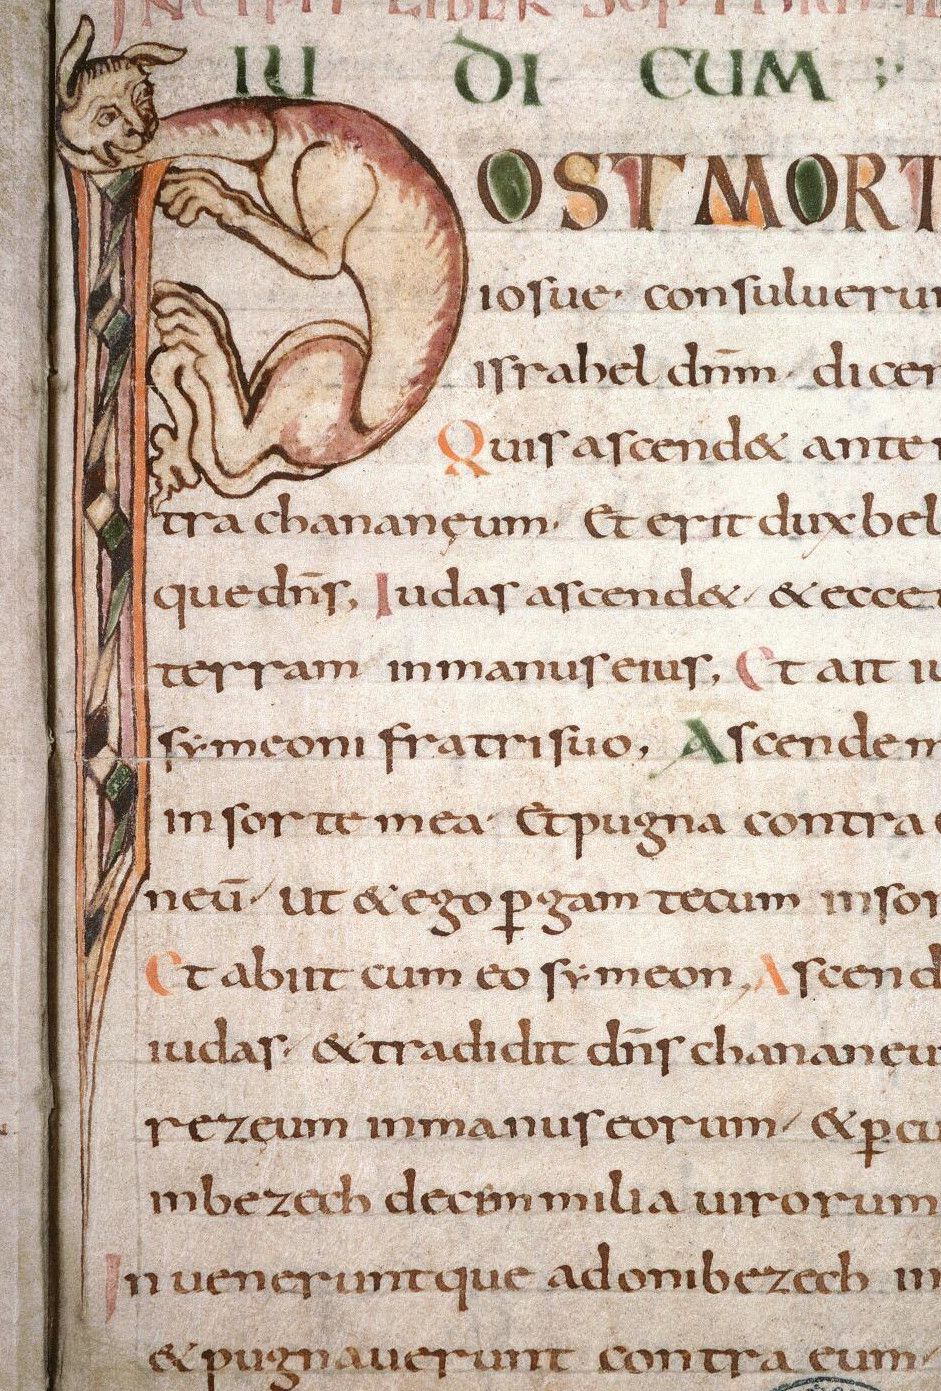 INCIPIT LIBER SOPTIM
IU DI CUM ;
POST MORT
iosue· consuluerun
israhel dn̄m· dicen
Quis ascend& ante n
tra chananęum· Et erit dux bel
que dn̄s, Iudas ascend&· & ecce
terram in manus eius, Et ait iu
symeoni fratri suo, Ascende m
in sorte mea· Et pugna contra
neū· Ut & ego ꝑgam tecum in sor
Et abiit cum eo symeon, Ascend
iudas· & tradidit dn̄s chananęu
rezeum in manus eorum· & ꝑcu
in bezech decem milia uirorum
Inueneruntque adonibezech in
& pugnauerunt contra eum·